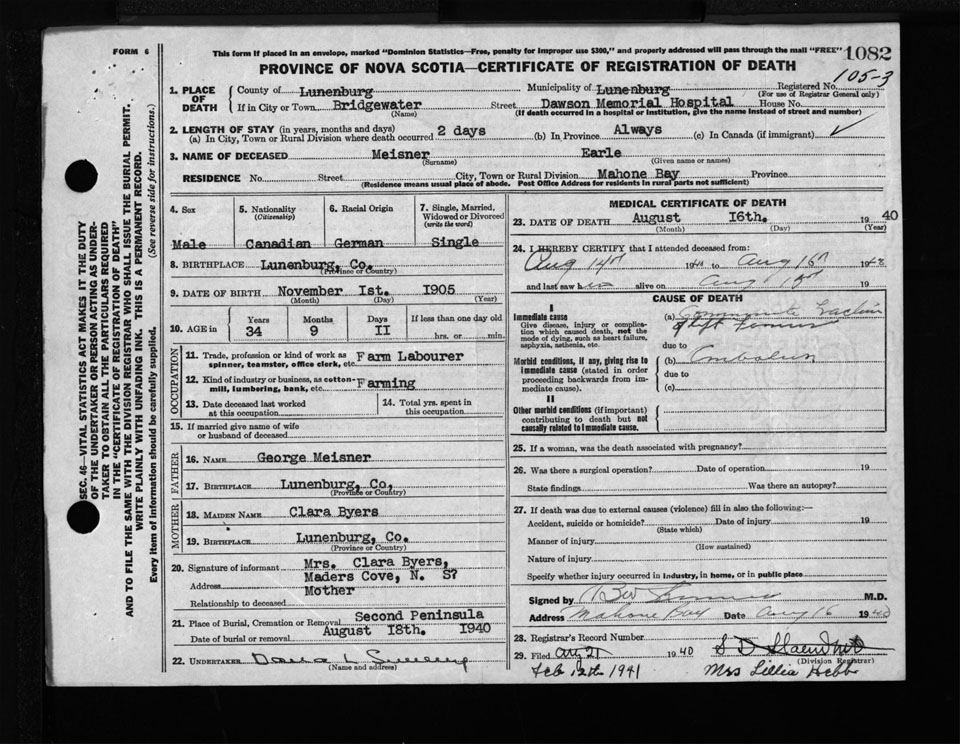 FORM 6
This form if placed in an envelope, marked "Dominion Statistics—Free, penalty for improper use $300," and properly addressed will pass through the mail "FREE"
1082
PROVINCE OF NOVA SCOTIA—CERTIFICATE OF REGISTRATION OF DEATH
105-3
1. PLACE OF DEATH
County of Lunenburg Municipality of Lunenburg Registered No.
(For use of Registrar General only)
If in City or Town Bridgewater Street Dawson Memorial Hospital House No.
(Name) (If death occurred in a hospital or institution, give the name instead of street and number)
2. LENGTH OF STAY (in years, months and days)
(a) In City, Town or Rural Division where death occurred 2 days (b) In Province Always (c) In Canada (if immigrant) ✓
3. NAME OF DECEASED Meisner Earle
(Surname) (Given name or names)
RESIDENCE No. Street City, Town or Rural Division Mahone Bay Province
(Residence means usual place of abode. Post Office Address for residents in rural parts not sufficient)
4. Sex Male
5. Nationality (Citizenship) Canadian
6. Racial Origin German
7. Single, Married, Widowed or Divorced (write the word) Single
8. BIRTHPLACE Lunenburg, Co.
(Province or Country)
9. DATE OF BIRTH November Ist. 1905
(Month) (Day) (Year)
10. AGE in Years 34 Months 9 Days II If less than one day old hrs. or min.
OCCUPATION
11. Trade, profession or kind of work as spinner, teamster, office clerk, etc. Farm Labourer
12. Kind of industry or business, as cotton-mill, lumbering, bank, etc. Farming
13. Date deceased last worked at this occupation
14. Total yrs. spent in this occupation
15. If married give name of wife or husband of deceased
FATHER
16. NAME George Meisner
17. BIRTHPLACE Lunenburg, Co,
(Province or Country)
MOTHER
18. MAIDEN NAME Clara Byers
19. BIRTHPLACE Lunenburg, Co.
(Province or Country)
20. Signature of informant Mrs. Clara Byers,
Address Maders Cove, N. S?
Relationship to deceased Mother
21. Place of Burial, Cremation or Removal Second Peninsula
Date of burial or removal August I8th. I940
22. UNDERTAKER
(Name and address)
MEDICAL CERTIFICATE OF DEATH
23. DATE OF DEATH August I6th. 1940
(Month) (Day) (Year)
24. I HEREBY CERTIFY that I attended deceased from:
Aug 14th 1940 to Aug 16th 1940
and last saw him alive on Aug 19
CAUSE OF DEATH
I
Immediate cause
Give disease, injury or complication which caused death, not the mode of dying, such as heart failure, asphyxia, asthenia, etc.
(a)
left Femur
due to
Morbid conditions, if any, giving rise to immediate cause (stated in order proceeding backwards from immediate cause).
(b) Embolism
due to
(c)
II
Other morbid conditions (if important) contributing to death but not causally related to immediate cause.
25. If a woman, was the death associated with pregnancy?
26. Was there a surgical operation? Date of operation 19
State findings Was there an autopsy?
27. If death was due to external causes (violence) fill in also the following:—
Accident, suicide or homicide? Date of injury 19
(State which)
Manner of injury
(How sustained)
Nature of injury
Specify whether injury occurred in industry, in home, or in public place
Signed by M.D.
Address Mahone Bay Date Aug 16 1940
28. Registrar's Record Number
29. Filed Aug 21 1940
(Division Registrar)
Feb 12th 1941 Mrs Lillie Hebb
SEC. 46—VITAL STATISTICS ACT MAKES IT THE DUTY
OF THE UNDERTAKER OR PERSON ACTING AS UNDER-
TAKER TO OBTAIN ALL THE PARTICULARS REQUIRED
IN THE "CERTIFICATE OF REGISTRATION OF DEATH"
AND TO FILE THE SAME WITH THE DIVISION REGISTRAR WHO SHALL ISSUE THE BURIAL PERMIT.
WRITE PLAINLY WITH UNFADING INK. THIS IS A PERMANENT RECORD.
Every item of information should be carefully supplied. (See reverse side for instructions.)